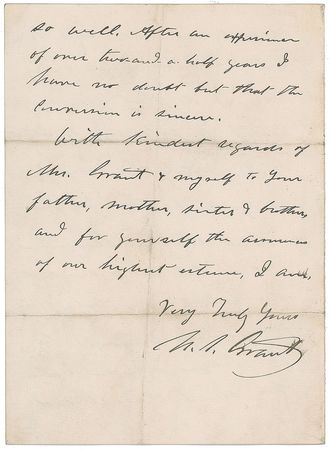 so well. After an experience
of over two and a half years I
have no doubt but that the
Conversion is sincere.
With kindest regards of
Mrs. Grant & myself to Your
father, mother, sister & brother,
and for yourself the assurances
of our highest esteem, I am,
Very Truly Yours
U. S. Grant